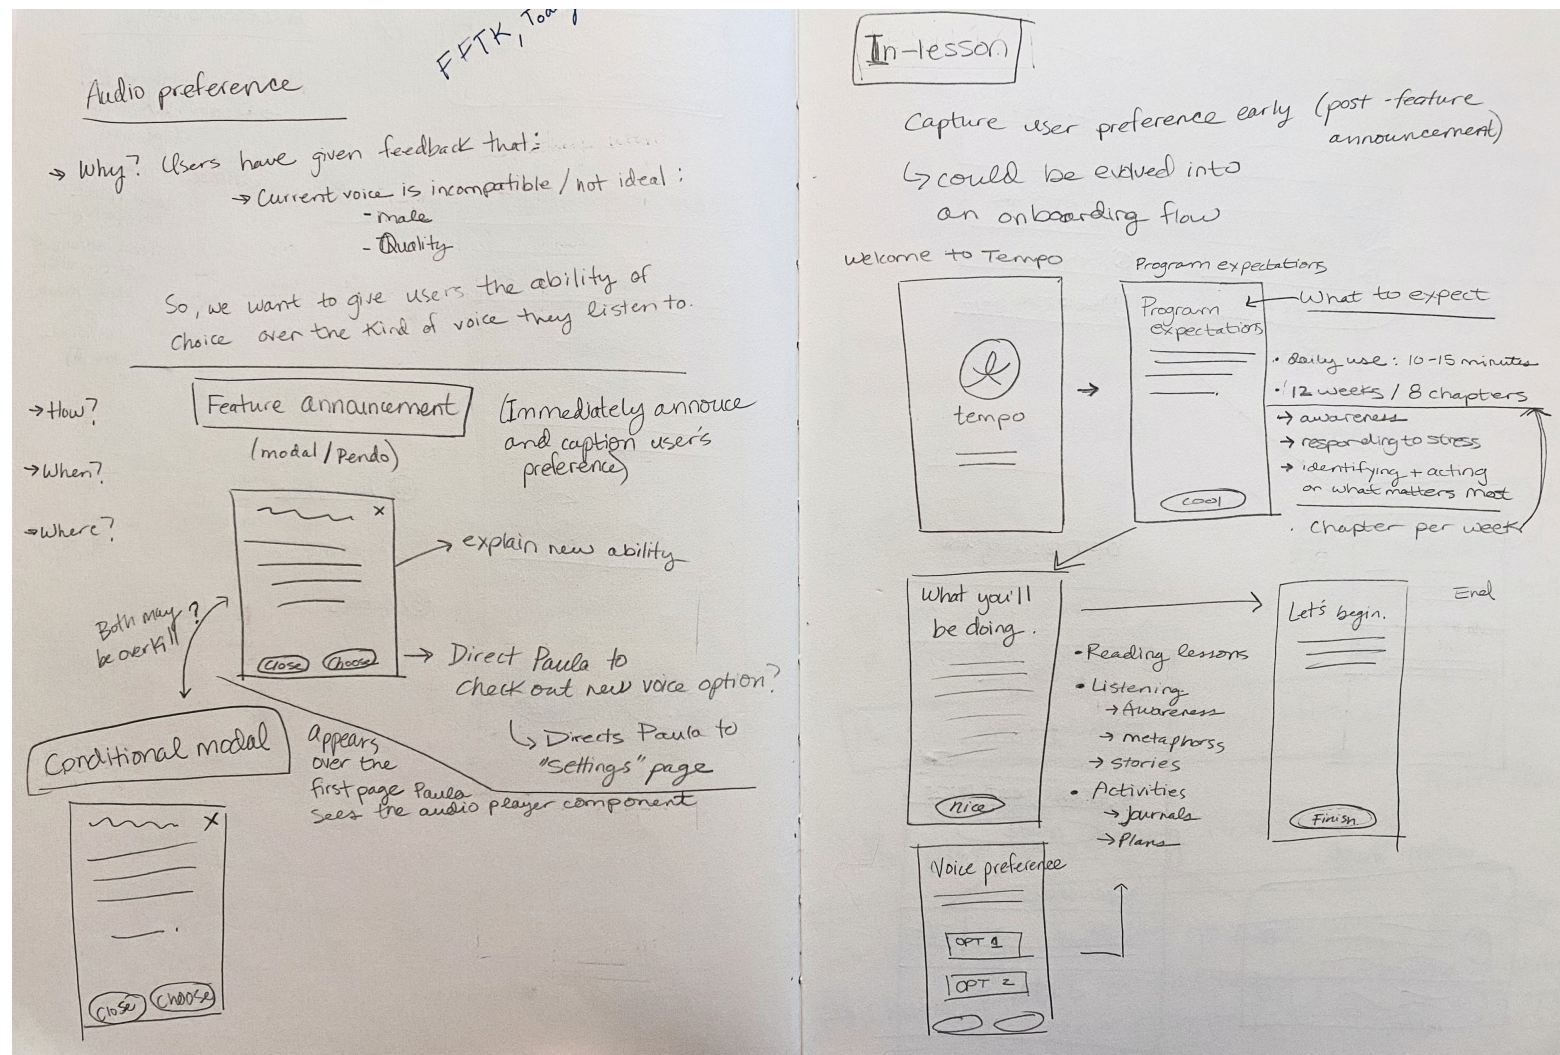 FFTK, Today
Audio preference
→ Why? Users have given feedback that:
→ Current voice is incompatible / not ideal:
- male
- Quality
So, we want to give users the ability of
choice over the kind of voice they listen to.
→ How?
→ When?
→ Where?
Feature announcement
(modal / Pendo)
(Immediately annouce
and caption user's
preference)
x
→ explain new ability
Close Choose
→ Direct Paula to
check out new voice option?
↳ Directs Paula to
"Settings" page
Both may ?
be overkill
Conditional modal
appears
over the
first page Paula
sees the audio player component
X
Close Choose
In-lesson
Capture user preference early (post-feature
announcement)
↳ could be evolved into
an onboarding flow
Welcome to Tempo
tempo
→
Program expectations
Program
expectations
cool
What to expect
• daily use: 10-15 minutes
• 12 weeks / 8 chapters
→ awareness
→ responding to stress
→ identifying + acting
on what matters most
. Chapter per week
What you'll
be doing.
nice
• Reading lessons
• Listening
→ Awareness
→ metaphorss
→ stories
• Activities
→ Journals
→ Plans
Let's begin.
Finish
End
Voice preference
OPT 1
OPT 2